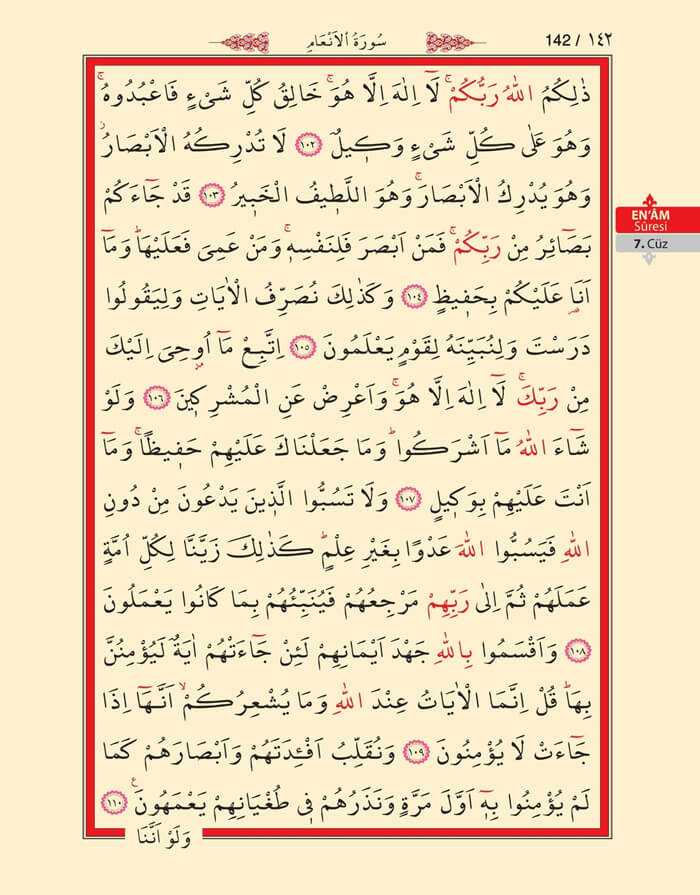 سُورَةُ الْاَنْعَامِ
142 / ١٤٢
ذٰلِكُمُ اللّٰهُ رَبُّكُمْۚ لَٓا اِلٰهَ اِلَّا هُوَۚ خَالِقُ كُلِّ شَيْءٍ فَاعْبُدُوهُۚ
وَهُوَ عَلٰى كُلِّ شَيْءٍ وَك۪يلٌ ﴿١٠٢﴾ لَا تُدْرِكُهُ الْاَبْصَارُۘ
وَهُوَ يُدْرِكُ الْاَبْصَارَۚ وَهُوَ اللَّط۪يفُ الْخَب۪يرُ ﴿١٠٣﴾ قَدْ جَٓاءَكُمْ
بَصَٓائِرُ مِنْ رَبِّكُمْۚ فَمَنْ اَبْصَرَ فَلِنَفْسِه۪ۚ وَمَنْ عَمِيَ فَعَلَيْهَاۜ وَمَٓا
اَنَا۬ عَلَيْكُمْ بِحَف۪يظٍ ﴿١٠٤﴾ وَكَذٰلِكَ نُصَرِّفُ الْاٰيَاتِ وَلِيَقُولُوا
دَرَسْتَ وَلِنُبَيِّنَهُ لِقَوْمٍ يَعْلَمُونَ ﴿١٠٥﴾ اِتَّبِعْ مَٓا اُو۫حِيَ اِلَيْكَ
مِنْ رَبِّكَۚ لَٓا اِلٰهَ اِلَّا هُوَۚ وَاَعْرِضْ عَنِ الْمُشْرِك۪ينَ ﴿١٠٦﴾ وَلَوْ
شَٓاءَ اللّٰهُ مَٓا اَشْرَكُواۜ وَمَا جَعَلْنَاكَ عَلَيْهِمْ حَف۪يظًاۚ وَمَٓا
اَنْتَ عَلَيْهِمْ بِوَك۪يلٍ ﴿١٠٧﴾ وَلَا تَسُبُّوا الَّذ۪ينَ يَدْعُونَ مِنْ دُونِ
اللّٰهِ فَيَسُبُّوا اللّٰهَ عَدْوًا بِغَيْرِ عِلْمٍۜ كَذٰلِكَ زَيَّنَّا لِكُلِّ اُمَّةٍ
عَمَلَهُمْ ثُمَّ اِلٰى رَبِّهِمْ مَرْجِعُهُمْ فَيُنَبِّئُهُمْ بِمَا كَانُوا يَعْمَلُونَ
﴿١٠٨﴾ وَاَقْسَمُوا بِاللّٰهِ جَهْدَ اَيْمَانِهِمْ لَئِنْ جَٓاءَتْهُمْ اٰيَةٌ لَيُؤْمِنُنَّ
بِهَاۜ قُلْ اِنَّمَا الْاٰيَاتُ عِنْدَ اللّٰهِ وَمَا يُشْعِرُكُمْۙ اَنَّهَٓا اِذَا
جَٓاءَتْ لَا يُؤْمِنُونَ ﴿١٠٩﴾ وَنُقَلِّبُ اَفْـِٔدَتَهُمْ وَاَبْصَارَهُمْ كَمَا
لَمْ يُؤْمِنُوا بِه۪ٓ اَوَّلَ مَرَّةٍ وَنَذَرُهُمْ ف۪ي طُغْيَانِهِمْ يَعْمَهُونَ۟ ﴿١١٠﴾
وَلَوْ اَنَّنَا
EN'ÂM
Sûresi
7. Cüz